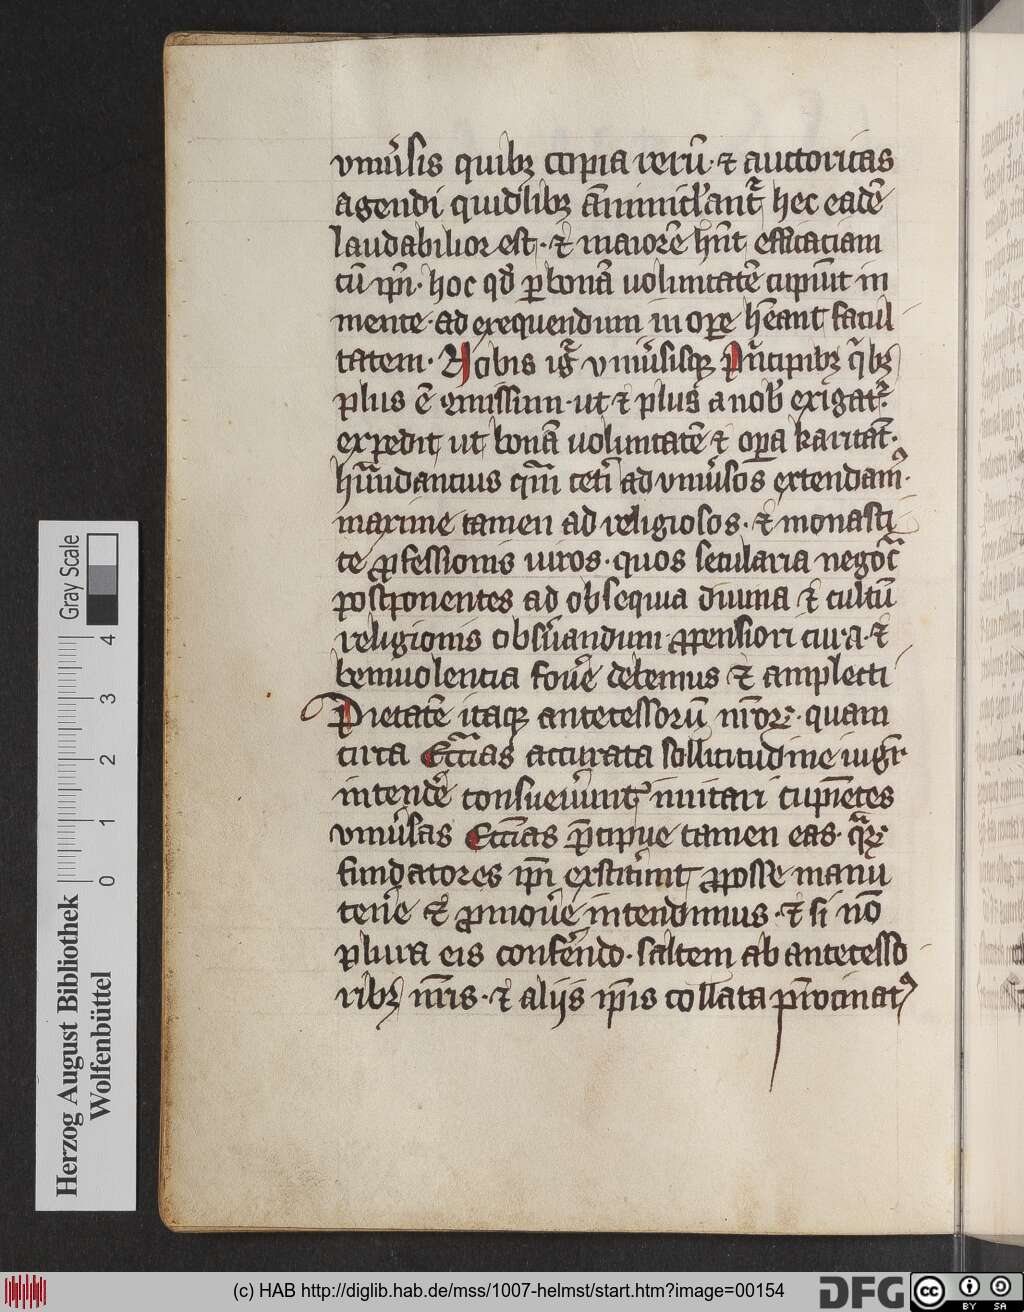 vniũsis quibꝫ copia rerū · ⁊ auctoritas
agendi quidlibꝫ hec eadē
laudabilior est · ⁊ maiorē hn̄t efficaciam
cū ip̄i · hoc qd̛ ꝑ bonā uoluntatē cupiūt in
mente · ad exequendum in oꝑe hēant facul
tatem · Nobis igͣ vniũsisqꝫ pͥncipibꝫ qͥbꝫ
plus ē ↄmissum · ut ⁊ plus a nob̛ exigatᷣ ·
expedit ut bonā uoluntatē ⁊ oꝑa karitat̄ ·
hͣundancius qͣm cet̛i ad vniũsos extendamꝰ ·
maxime tamen ad religiosos · ⁊ monasti
ce ꝓfessionis uiros · quos secularia negocͣ
postponentes ad obsequia diuina ⁊ cultū
religionis obsũandum · ꝓpensiori cura · ⁊
beniuolencia foưe debemus ⁊ amplecti
Pietatē itaqꝫ antecessorū nr̄oꝝ · quam
circa Ecc̄ias accurata sollicitudine iugit̛
intend̛e consueuer̄unt imitari cupiētes
vniũsas Ecc̄ias p̄cipue tamen eas · qͣꝝ
fundatores ip̄i exstiter̄unt ꝓ posse manu
ten̛e ⁊ ꝓmoưe intendimus · ⁊ si nō
plura eis conferendo · saltem ab antecesso
ribꝫ nr̄is · ⁊ aliis ip̄is collata
Gray Scale
0 1 2 3 4
Herzog August Bibliothek
Wolfenbüttel
(c) HAB http://diglib.hab.de/mss/1007-helmst/start.htm?image=00154
DFG
cc BY SA